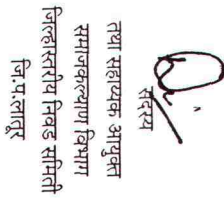 सदस्य
तथा सहाय्यक आयुक्त
समाजकल्याण विभाग
जिल्हास्तरीय निवड समिती
जि.प.लातूर